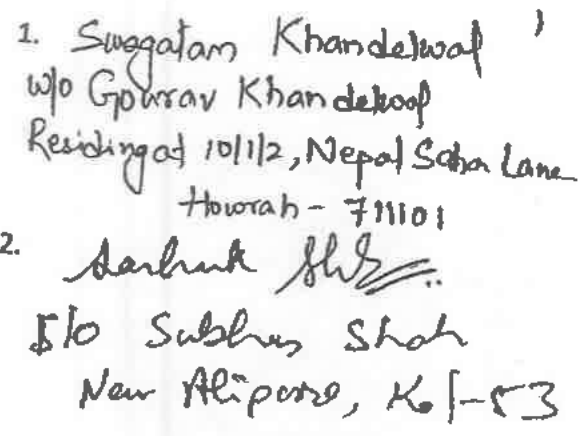 1. Swagatam Khandelwal
w/o Gourav Khandelwal
Residing at 10/1/2, Nepal Saha Lane
Howrah - 711101
2.
S/o Subhas Shah
New Alipore, Kol-53